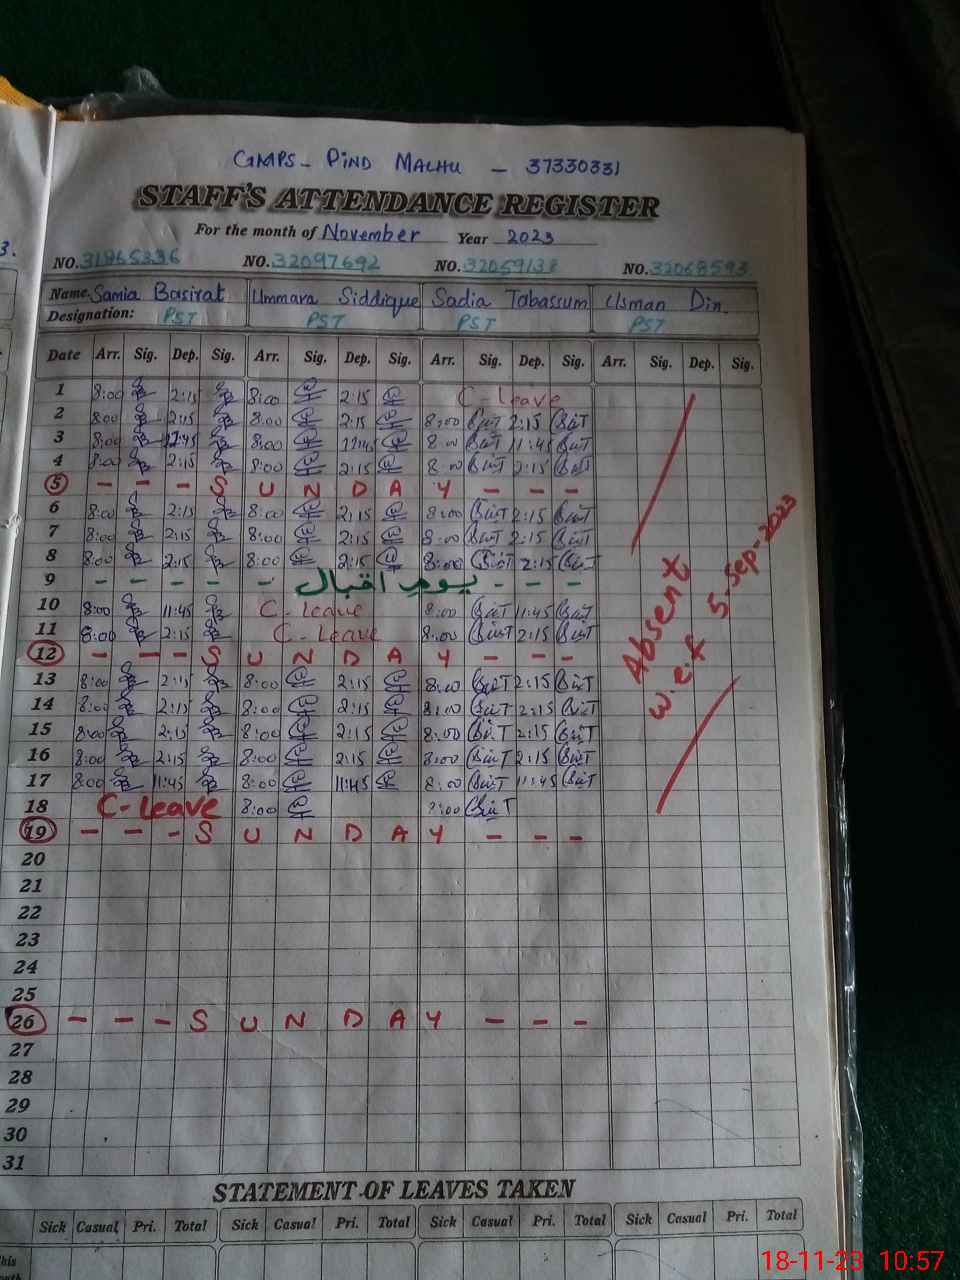 GMPS - PIND MALHU - 37330331
STAFF'S ATTENDANCE REGISTER
For the month of November Year 2023
NO. 31865336 NO. 32097692 NO. 32059138 NO. 32068593
Name. Samia Basirat Ummara Siddique Sadia Tabassum Usman Din.
Designation: PST PST PST PST
Date Arr. Sig. Dep. Sig. Arr. Sig. Dep. Sig. Arr. Sig. Dep. Sig. Arr. Sig. Dep. Sig.
1 8:00 2:15 8:00 2:15 C-Leave
2 8:00 2:15 8:00 2:15 8:00 2:15
3 8:00 11:45 8:00 11:45 8:00 11:45
4 8:00 2:15 8:00 2:15 8:00 2:15
5 - - - S U N D A Y - - -
6 8:00 2:15 8:00 2:15 8:00 2:15
7 8:00 2:15 8:00 2:15 8:00 2:15
8 8:00 2:15 8:00 2:15 8:00 2:15
9 - - - - - یوم اقبال - - -
10 8:00 11:45 C-Leave 8:00 11:45
11 8:00 2:15 C-Leave 8:00 2:15
12 - - - S U N D A Y - - -
13 8:00 2:15 8:00 2:15 8:00 2:15
14 8:00 2:15 8:00 2:15 8:00 2:15
15 8:00 2:15 8:00 2:15 8:00 2:15
16 8:00 2:15 8:00 2:15 8:00 2:15
17 8:00 11:45 8:00 11:45 8:00 11:45
18 C-Leave 8:00 8:00
19 - - - S U N D A Y - - -
20
21
22
23
24
25
26 - - - S U N D A Y - - -
27
28
29
30
31
Absent
w.e.f 5-Sep-2023
STATEMENT OF LEAVES TAKEN
Sick Casual Pri. Total Sick Casual Pri. Total Sick Casual Pri. Total Sick Casual Pri. Total
18-11-23 10:57